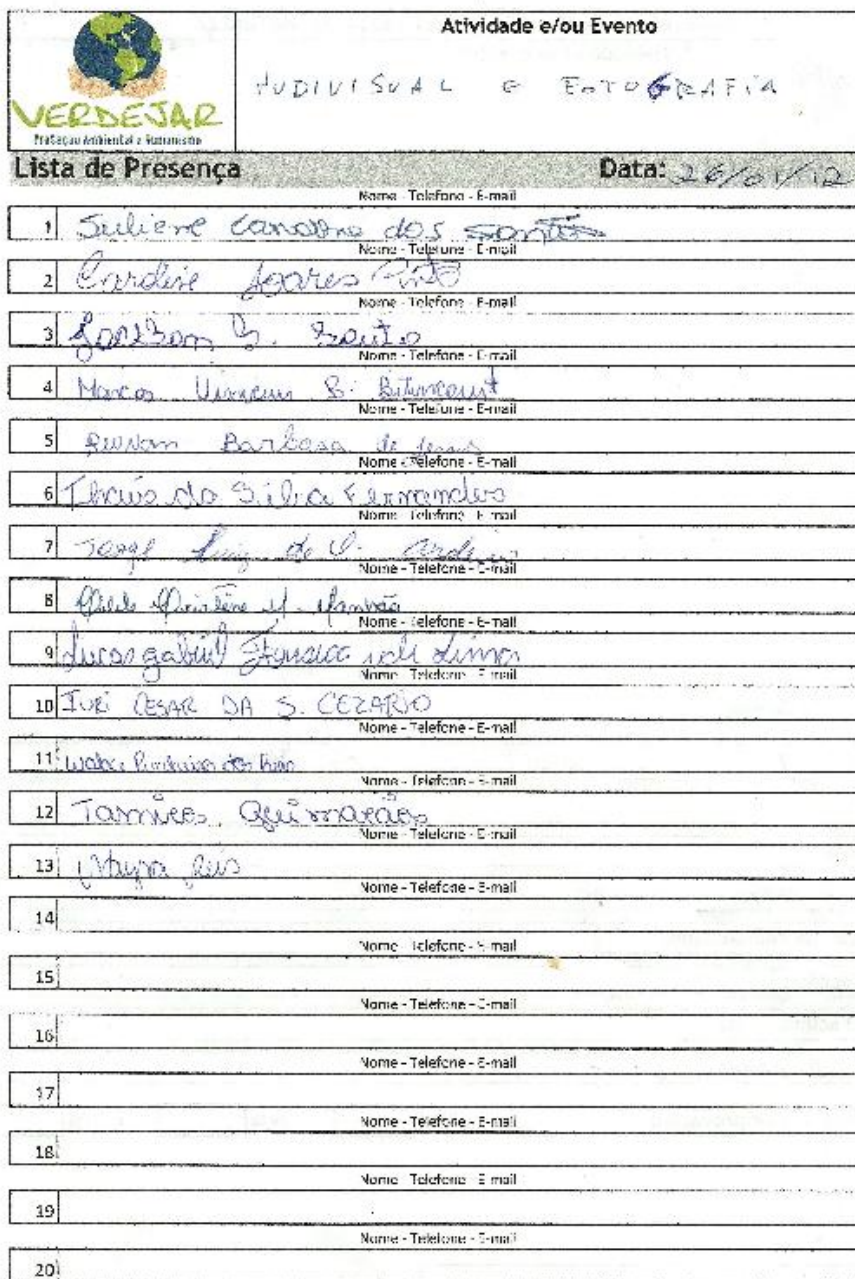 VERDEJAR
Proteção Ambiental e Humanismo
Atividade e/ou Evento
AUDIVISUAL E FOTOGRAFIA
Lista de Presença
Data: 26/01/12
Nome - Telefone - E-mail
1 Suliene dos Santos
Nome - Telefone - E-mail
2 Caroline Soares Pinto
Nome - Telefone - E-mail
3
Nome - Telefone - E-mail
4 Marcos Vinicius B. Bitencourt
Nome - Telefone - E-mail
5 Barbosa de Jesus
Nome - Telefone - E-mail
6 Thaís da Silva Fernandes
Nome - Telefone - E-mail
7 Jorge Luiz de
Nome - Telefone - E-mail
8
Nome - Telefone - E-mail
9 Lucas gabriel Fonseca de Lima
Nome - Telefone - E-mail
10 IURI CESAR DA S. CEZARIO
Nome - Telefone - E-mail
11 dos
Nome - Telefone - E-mail
12 Tamires Guimarães
Nome - Telefone - E-mail
13 Mayra Reis
Nome - Telefone - E-mail
14
Nome - Telefone - E-mail
15
Nome - Telefone - E-mail
16
Nome - Telefone - E-mail
17
Nome - Telefone - E-mail
18
Nome - Telefone - E-mail
19
Nome - Telefone - E-mail
20